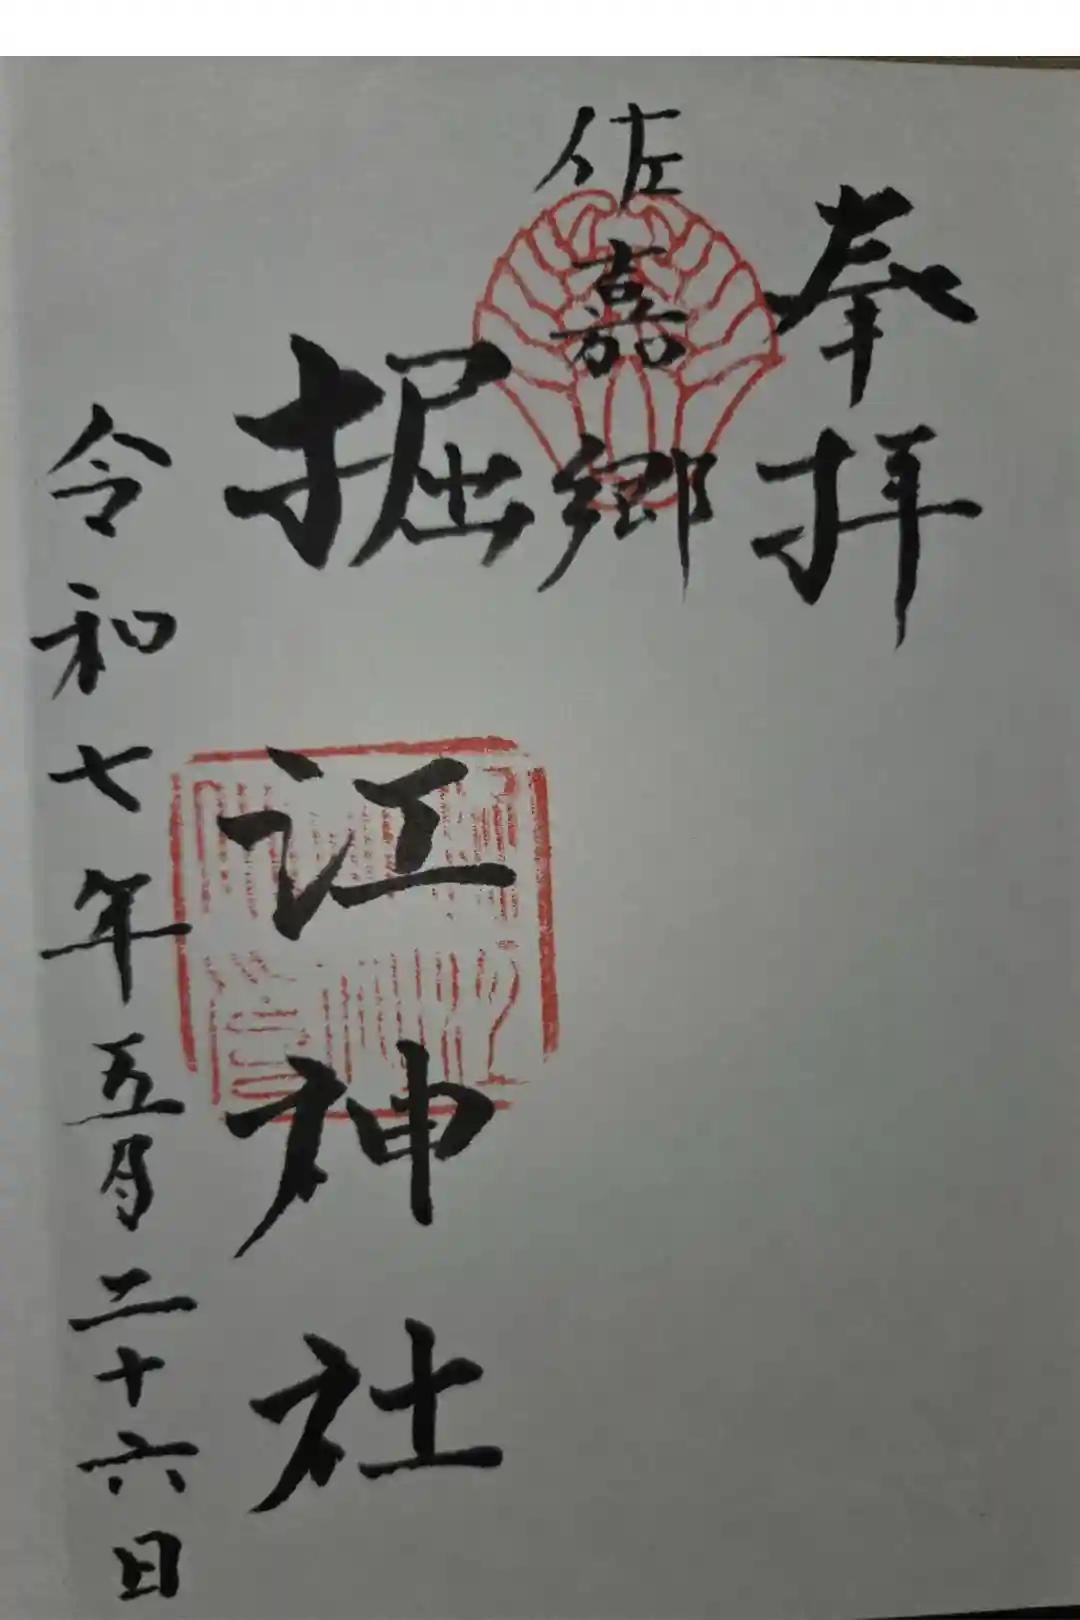 奉拝
佐嘉郷
掘江神社
令和七年五月二十六日